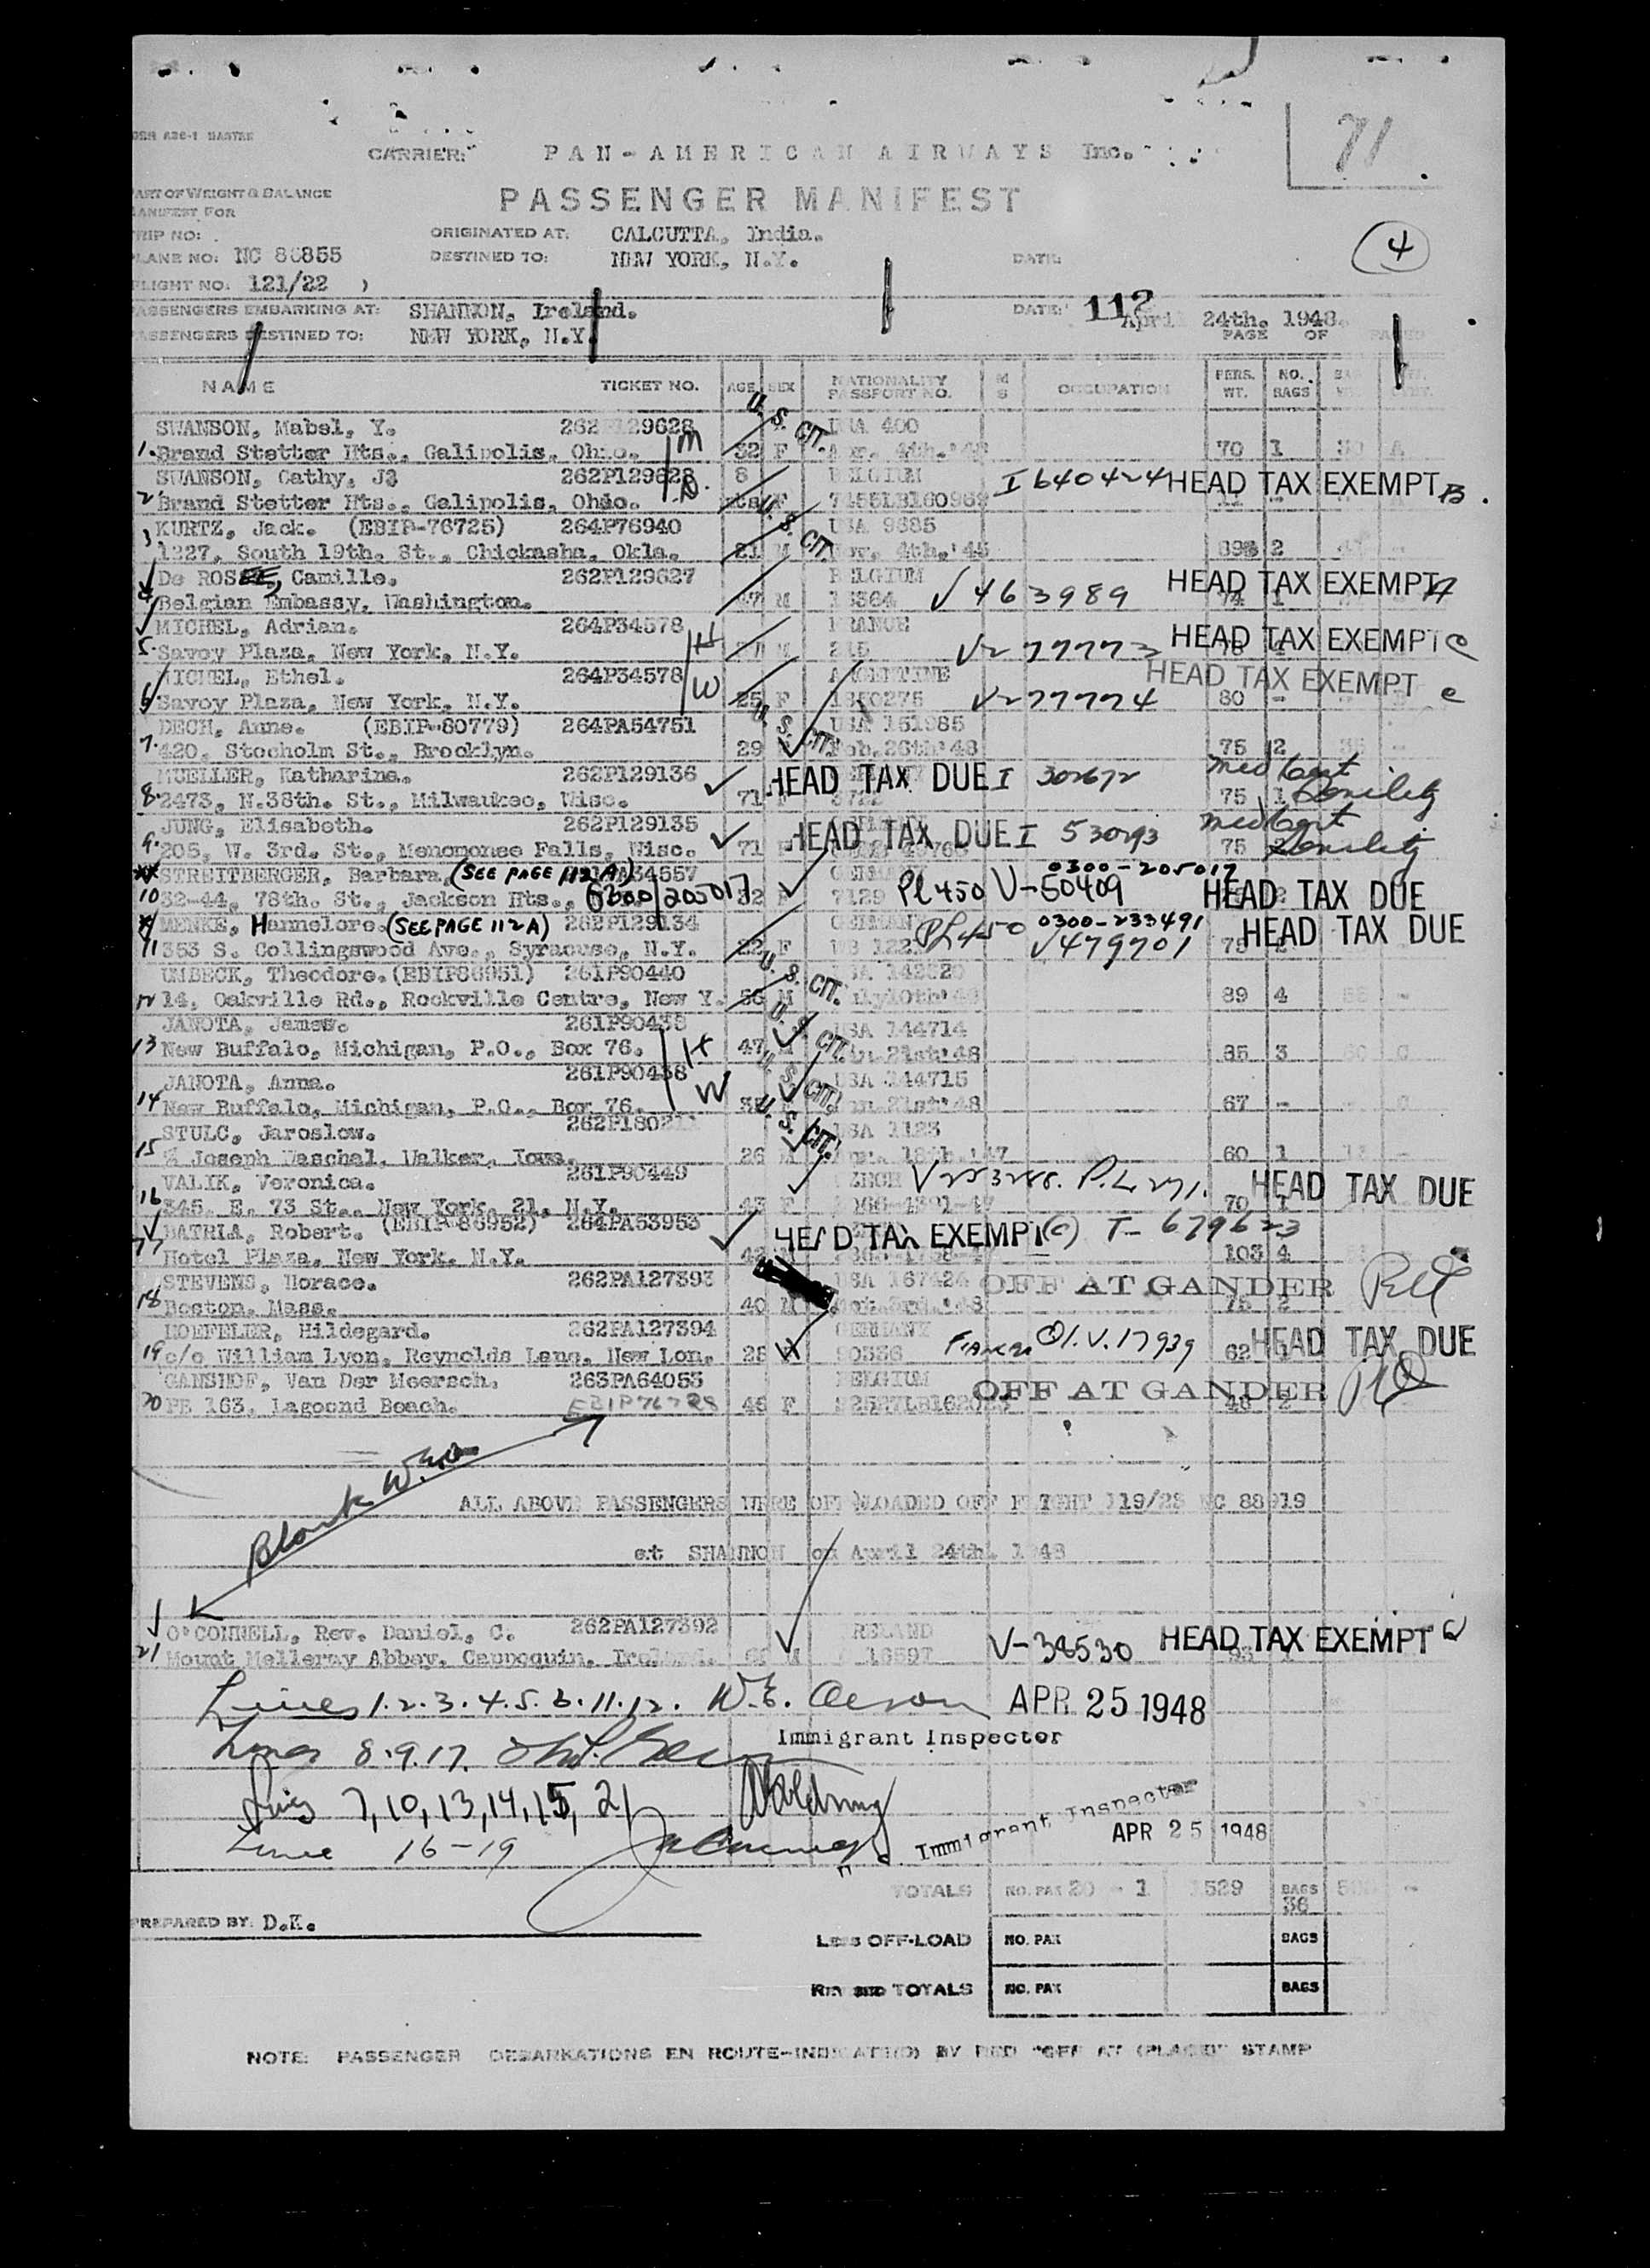 71
CARRIER: PAN-AMERICAN AIRWAYS Inc.
PASSENGER MANIFEST
WEIGHT & BALANCE
FOR
ORIGINATED AT: CALCUTTA, India.
NC 88855 DESTINED TO: NEW YORK, N.Y. DATE:
4
121/22 )
EMBARKING AT: SHANNON, Ireland. DATE: 112 April 24th. 1948.
DESTINED TO: NEW YORK, N.Y. PAGE OF
NAME TICKET NO. AGE SEX NATIONALITY PASSPORT NO. M S OCCUPATION PERS. WT. NO. BAGS
SWANSON, Mabel, Y. 262P129628 U.S. CIT. USA 400
1. Brand Stetter Hts., Galipolis, Ohio. M 32 F 70 1
SWANSON, Cathy, J. 262P129628 8 BELGIUM I 640424 HEAD TAX EXEMPT B.
2 Brand Stetter Hts., Galipolis, Ohio. D. F
KURTZ, Jack. (EBIP-76725) 264P76940 U.S. CIT. USA 9685
3 1227, South 19th. St., Chickasha, Okla. 21 M 2
De ROSEE, Camille. 262P129627 BELGIUM HEAD TAX EXEMPT A
4 Belgian Embassy, Washington. 47 M V 463989
MICHEL, Adrian. 264P34578 H FRANCE HEAD TAX EXEMPT C
5. Savoy Plaza, New York, N.Y. M V-277773
MICHEL, Ethel. 264P34578 W ARGENTINE HEAD TAX EXEMPT C
6 Savoy Plaza, New York, N.Y. 25 F 1350275 V-277774 80 -
DECH, Anne. (EBIP-80779) 264PA54751 U.S. CIT. USA 151985
7. 420, Stocholm St., Brooklyn. 29 Feb. 26th '48 75 2
MUELLER, Katharina. 262P129136 HEAD TAX DUE I 302672 Med Cert
8. 2473, N.38th. St., Milwaukee, Wisc. 71 F 75 1 Senility
JUNG, Elisabeth. 262P129135 HEAD TAX DUE I 530293 Med Cert
9. 205, W. 3rd. St., Menomonee Falls, Wisc. 71 F 75 Senility
STREITBERGER, Barbara. (SEE PAGE 112 A) GERMANY 0300-205017
10 32-44, 78th. St., Jackson Hts., 0300/205017 32 F 7129 PL 450 V-50409 HEAD TAX DUE
MENKE, Hannelore. (SEE PAGE 112 A) 262P129134 GERMANY PL 450 0300-233491 HEAD TAX DUE
11 353 S. Collingswood Ave., Syracuse, N.Y. 22 F V 479701 75
UMBECK, Theodore. (EBIP86951) 261P90440 U.S. CIT.
12 14, Oakville Rd., Rockville Centre, New Y. 56 M 89 4
JANOTA, James. 261P90438 U.S. CIT. USA 144714
13 New Buffalo, Michigan, P.O., Box 76. H 47 M Jan. 21st '48 85 3
JANOTA, Anna. 261P90438 W U.S. CIT. USA 144715
14 New Buffalo, Michigan, P.O., Box 76. Jan. 21st '48 67 -
STULC, Jaroslow. U.S. CIT. USA 1123
15 % Joseph Waschal, Walker, Iowa. 26 M 60 1
VALIK, Veronica. 261P90449 CZECH V253288. P.L. 271. HEAD TAX DUE
16 345. E. 73 St., New York. 21. N.Y. 43 F 70 1
BATRIA, Robert. (EBIP-86952) 264PA53953 HEAD TAX EXEMPT (C) T-679623
17 Hotel Plaza, New York. N.Y. 42 M 103 4
STEVENS, Horace. 262PA127393 USA 167424 OFF AT GANDER
18 Boston. Mass. 40 M 75 2
LOEFELER, Hildegard. 262PA127394 GERMANY HEAD TAX DUE
19 c/o William Lyon, Reynolds Lane, New Lon. 28 F 90336 QI.V.17939 62 1
GANSHOF, Van Der Meersch. 263PA64053 BELGIUM OFF AT GANDER
20 PE 163. Lagoond Beach. EBIP76728 46 F 48 2
Blank W.E.O.
ALL ABOVE PASSENGERS WERE OFF LOADED OFF FLIGHT 119/23 NC 88919
at SHANNON on April 24th. 1948
O'CONNELL, Rev. Daniel, C. 262PA127392 IRELAND V-38530 HEAD TAX EXEMPT
21 Mount Melleray Abbey, Cappoquin, Ireland. M 16597 93
Lines 1.2.3.4.5.6.11.12. W.E. Oeson APR 25 1948
Immigrant Inspector
Lines 8.9.17.
Lines 7,10,13,14,15,21
Immigrant Inspector
APR 25 1948
Line 16-19
TOTALS NO. PAX 20 - 1 1529 BAGS 36
PREPARED BY: D.K.
Less OFF-LOAD NO. PAX BAGS
REVISED TOTALS NO. PAX BAGS
NOTE: PASSENGER DEBARKATIONS EN ROUTE-INDICATED BY RED "OFF AT (PLACE)" STAMP